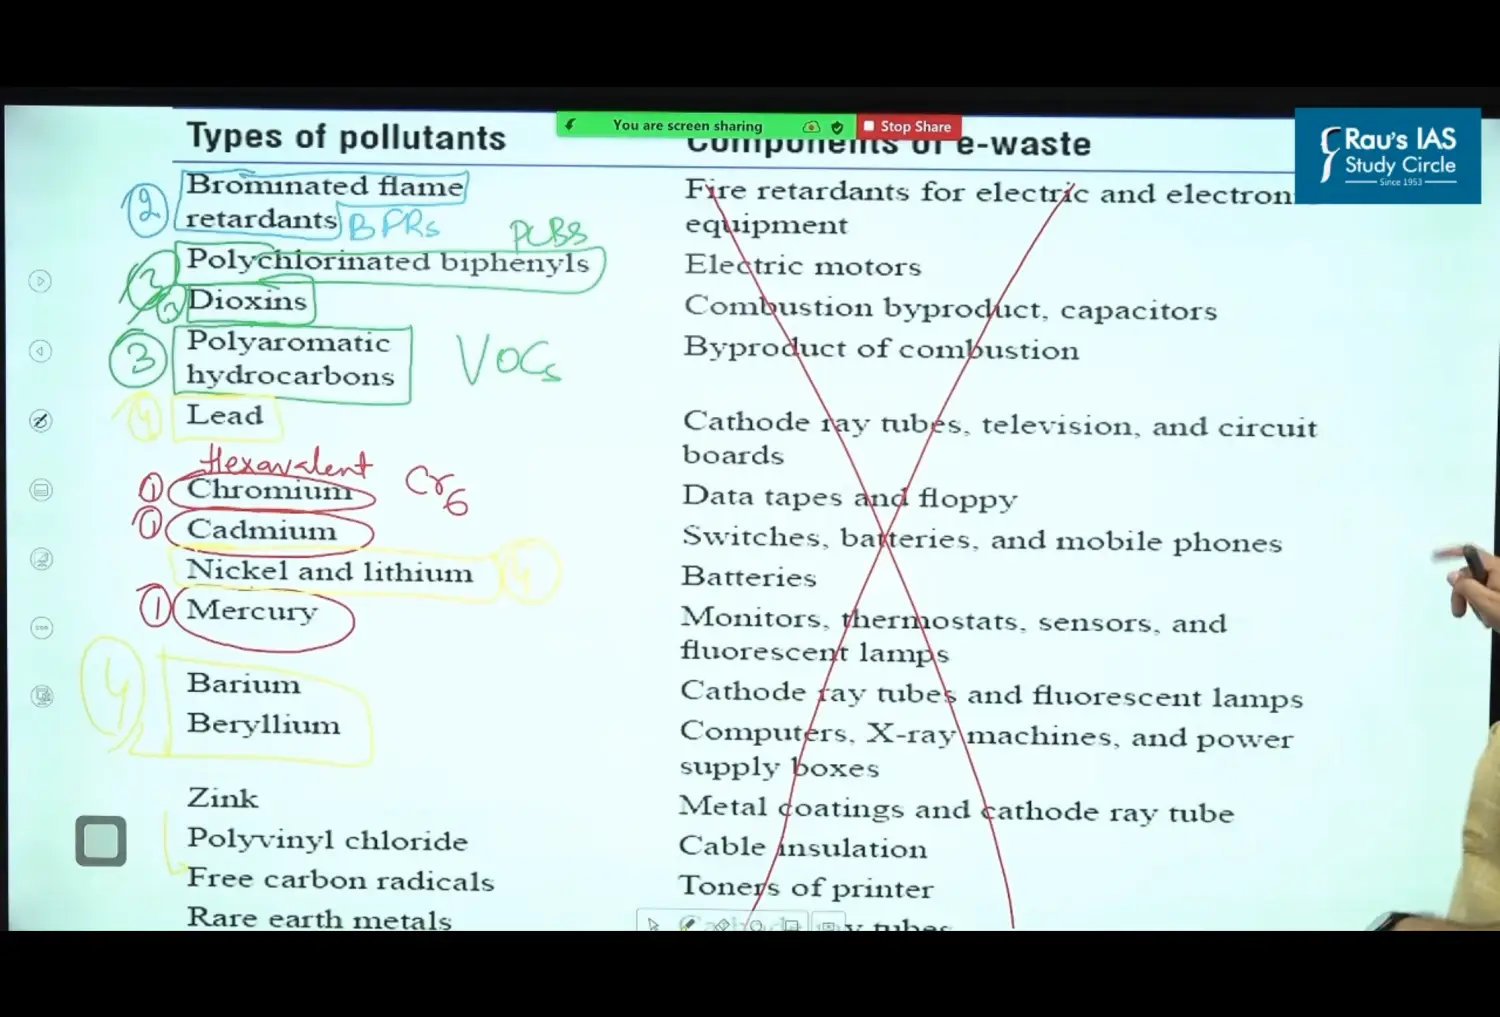 You are screen sharing
Stop Share
Rau's IAS
Study Circle
Since 1953
Types of pollutants
Components of e-waste
2
Brominated flame
retardants
BFRs
PCBs
Fire retardants for electric and electron
equipment
3
Polychlorinated biphenyls
Electric motors
Dioxins
Combustion byproduct, capacitors
3
Polyaromatic
hydrocarbons
VOCs
Byproduct of combustion
4
Lead
Cathode ray tubes, television, and circuit
boards
Hexavalent
1
Chromium
Cr6
Data tapes and floppy
1
Cadmium
Switches, batteries, and mobile phones
Nickel and lithium
4
Batteries
1
Mercury
Monitors, thermostats, sensors, and
fluorescent lamps
4
Barium
Cathode ray tubes and fluorescent lamps
Beryllium
Computers, X-ray machines, and power
supply boxes
Zink
Metal coatings and cathode ray tube
Polyvinyl chloride
Cable insulation
Free carbon radicals
Toners of printer
Rare earth metals
tubes